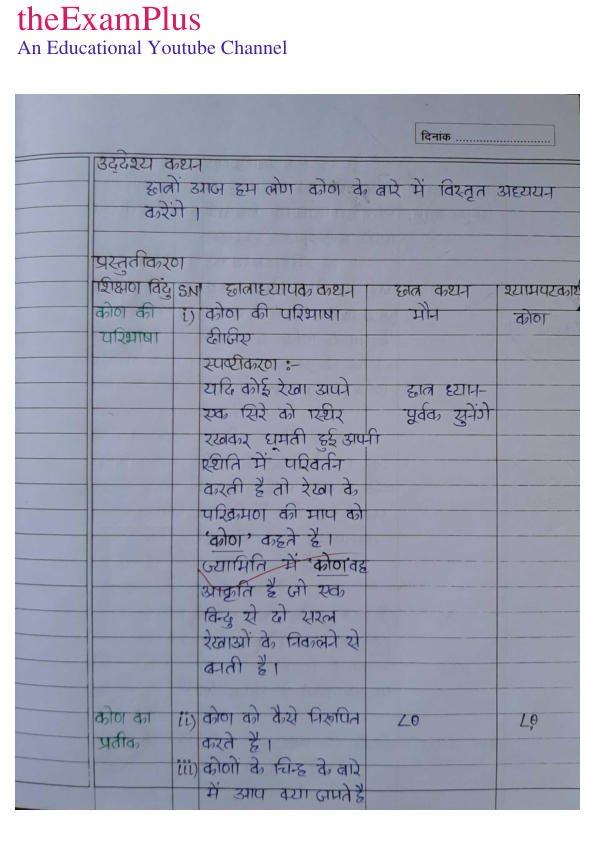 theExamPlus
An Educational Youtube Channel
दिनांक ............................
उद्देश्य कथन
छात्रों आज हम लोग कोण के बारे में विस्तृत अध्ययन
करेंगे ।
प्रस्तुतीकरण
शिक्षण बिंदु SN छात्राध्यापक कथन छात्र कथन श्यामपटकार्य
कोण की i) कोण की परिभाषा मौन कोण
परिभाषा दीजिए
स्पष्टीकरण :-
यदि कोई रेखा अपने छात्र ध्यान-
एक सिरे को स्थिर पूर्वक सुनेंगे
रखकर घूमती हुई अपनी
स्थिति में परिवर्तन
करती है तो रेखा के
परिक्रमण की माप को
'कोण' कहते है ।
ज्यामिति में 'कोण' वह
आकृति है जो एक
बिन्दु से दो सरल
रेखाओं के निकलने से
बनती है ।
कोण का ii) कोण को कैसे निरूपित ∠θ ∠θ
प्रतीक करते है ।
iii) कोणों के चिन्ह के बारे
में आप क्या जानते है